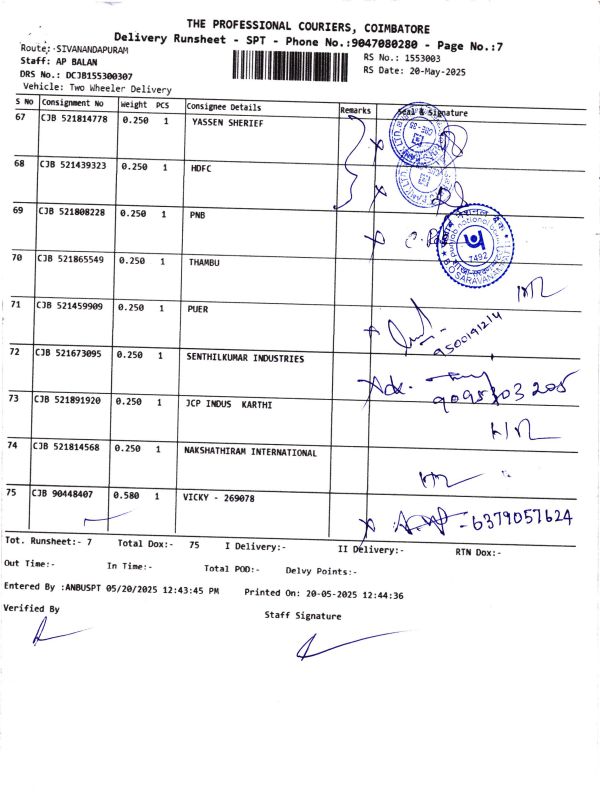 THE PROFESSIONAL COURIERS, COIMBATORE
Delivery Runsheet - SPT - Phone No.:9047080280 - Page No.:7
Route:-SIVANANDAPURAM
RS No.: 1553003
Staff: AP BALAN
RS Date: 20-May-2025
DRS No.: DCJB155300307
Vehicle: Two Wheeler Delivery
S No Consignment No Weight PCS Consignee Details Remarks Seal & Signature
67 CJB 521814778 0.250 1 YASSEN SHERIEF
68 CJB 521439323 0.250 1 HDFC
69 CJB 521808228 0.250 1 PNB
punjab national bank
7492
B.O SARAVANAMPATTI
70 CJB 521865549 0.250 1 THAMBU
71 CJB 521459909 0.250 1 PUER
9500191214
72 CJB 521673095 0.250 1 SENTHILKUMAR INDUSTRIES
9095303205
73 CJB 521891920 0.250 1 JCP INDUS KARTHI
74 CJB 521814568 0.250 1 NAKSHATHIRAM INTERNATIONAL
75 CJB 90448407 0.580 1 VICKY - 269078
-6379057624
Tot. Runsheet:- 7 Total Dox:- 75 I Delivery:- II Delivery:- RTN Dox:-
Out Time:- In Time:- Total POD:- Delvy Points:-
Entered By :ANBUSPT 05/20/2025 12:43:45 PM Printed On: 20-05-2025 12:44:36
Verified By
Staff Signature